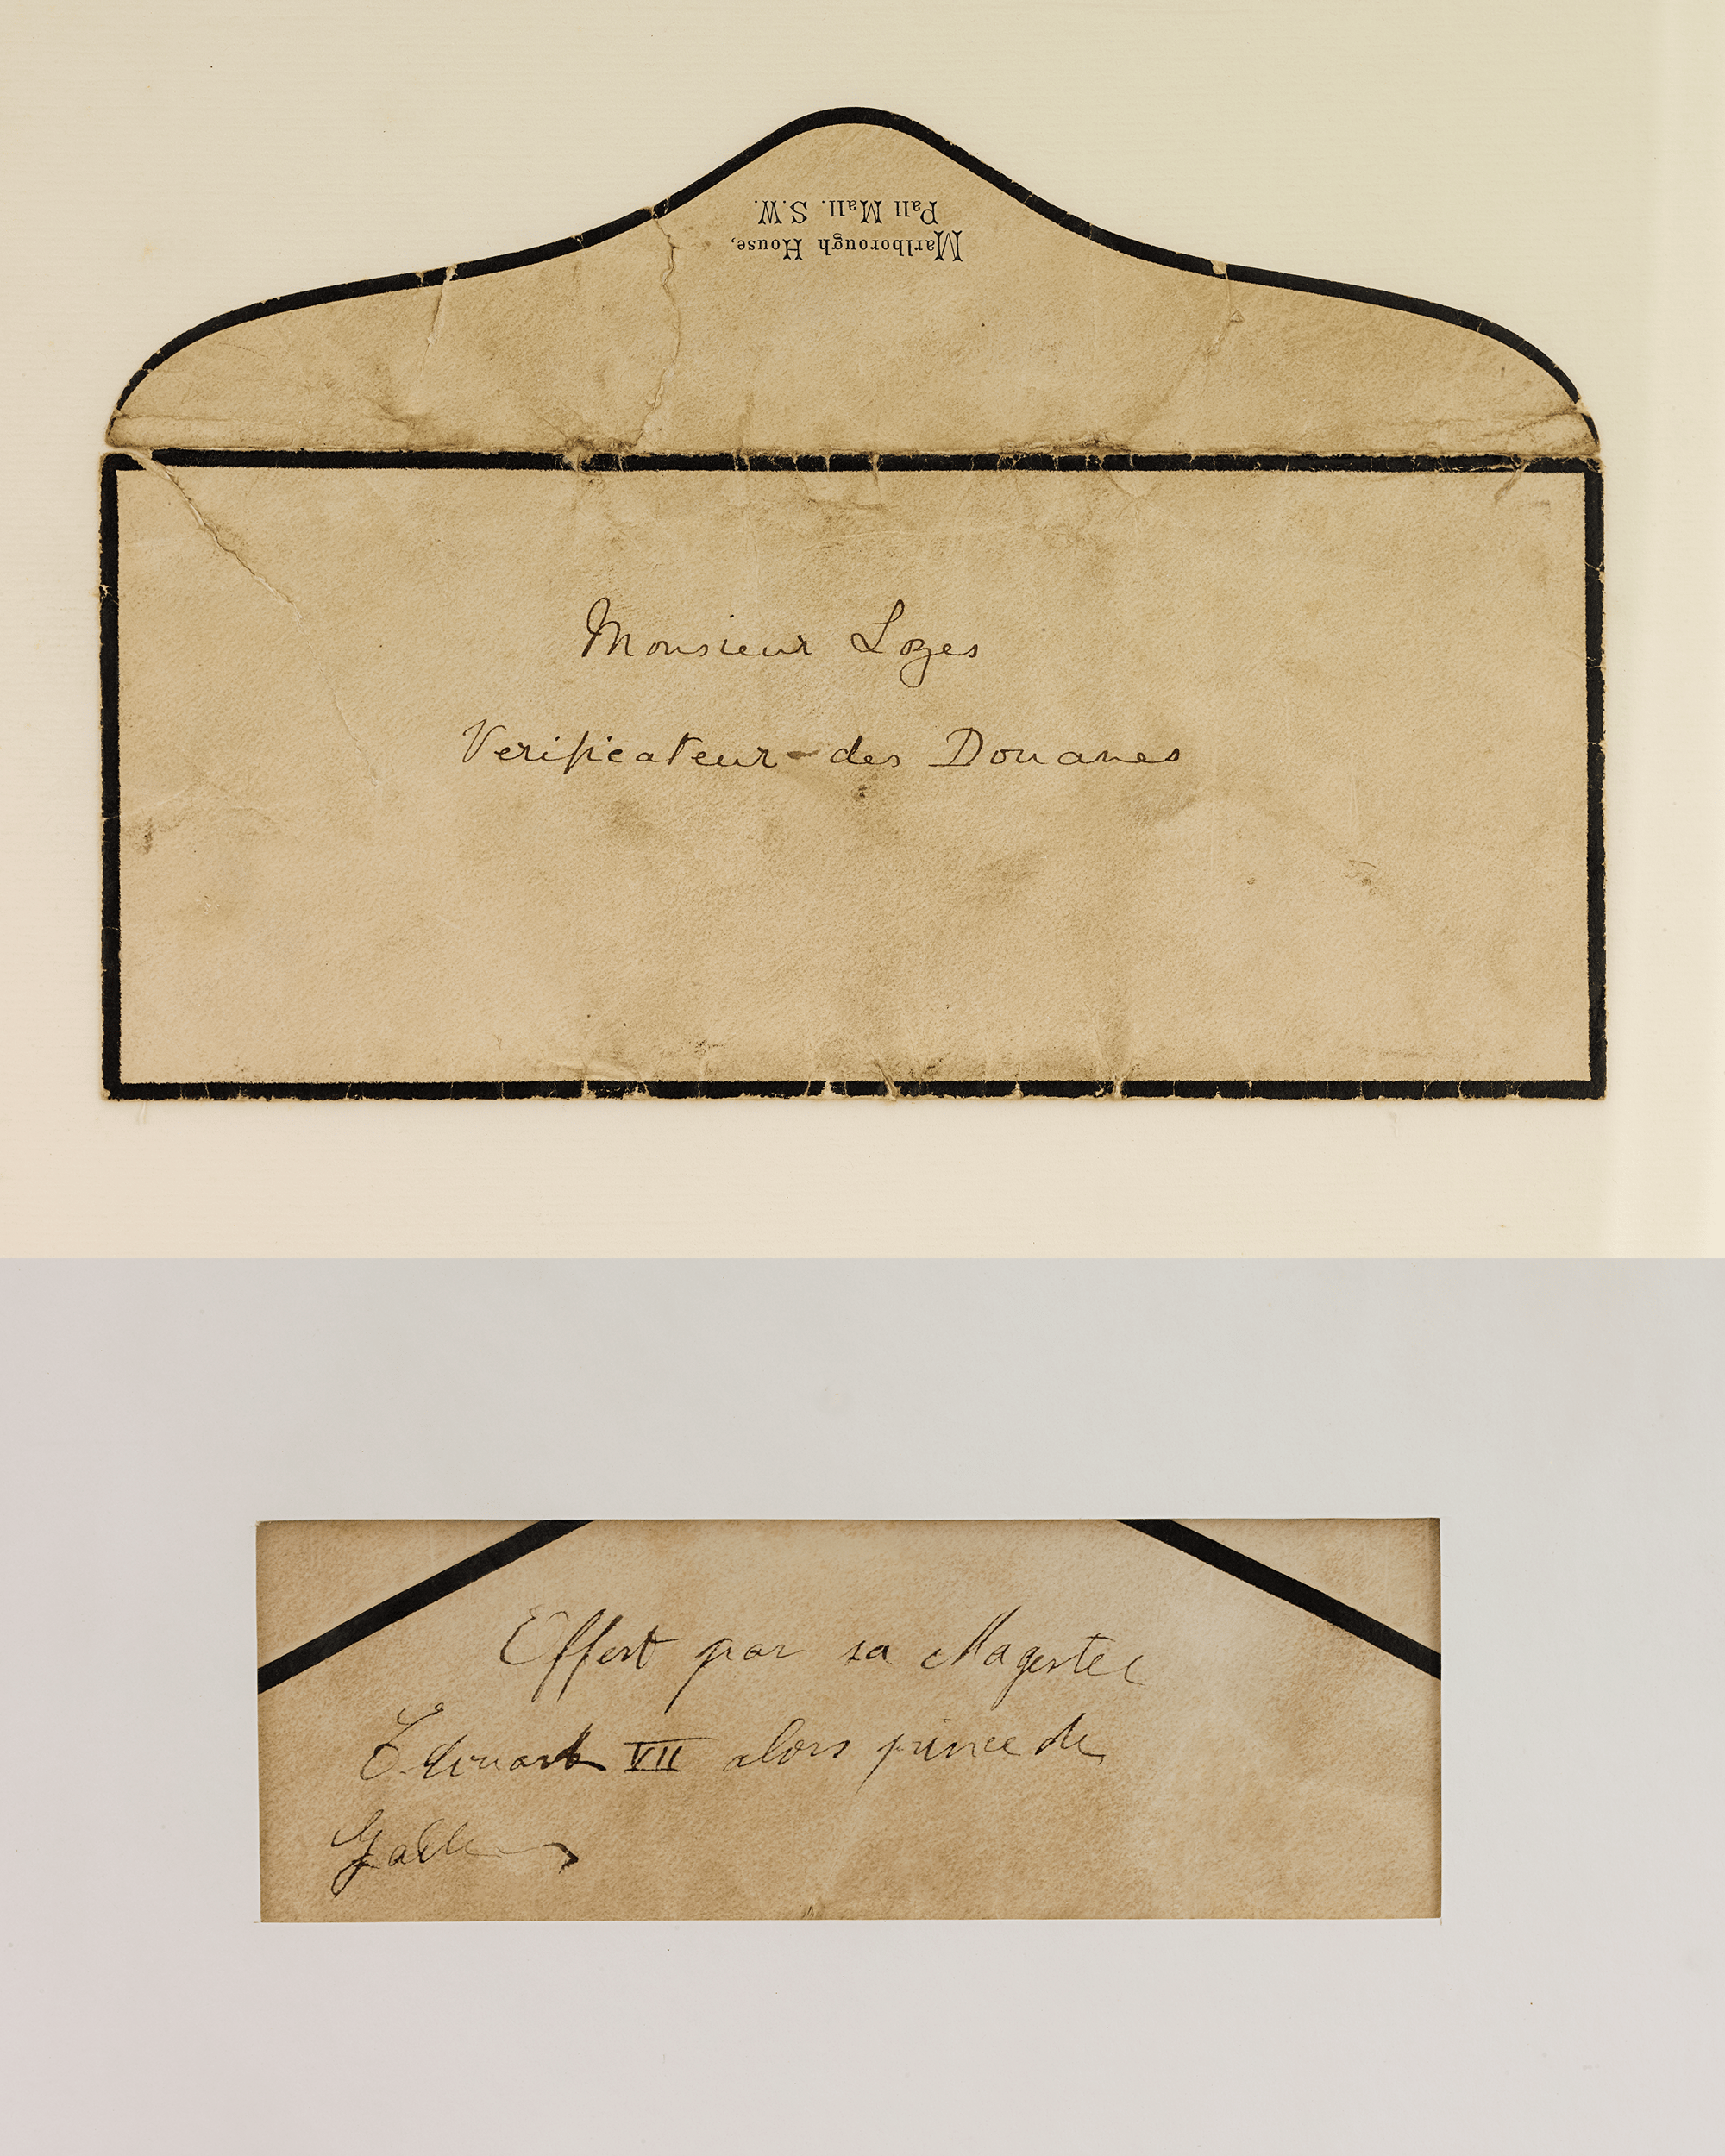 Marlborough House,
Pall Mall. S.W.
Monsieur Lozes
Verificateur des Douanes
Offert par sa Magestee
Edouard VII alors prince de
Galles